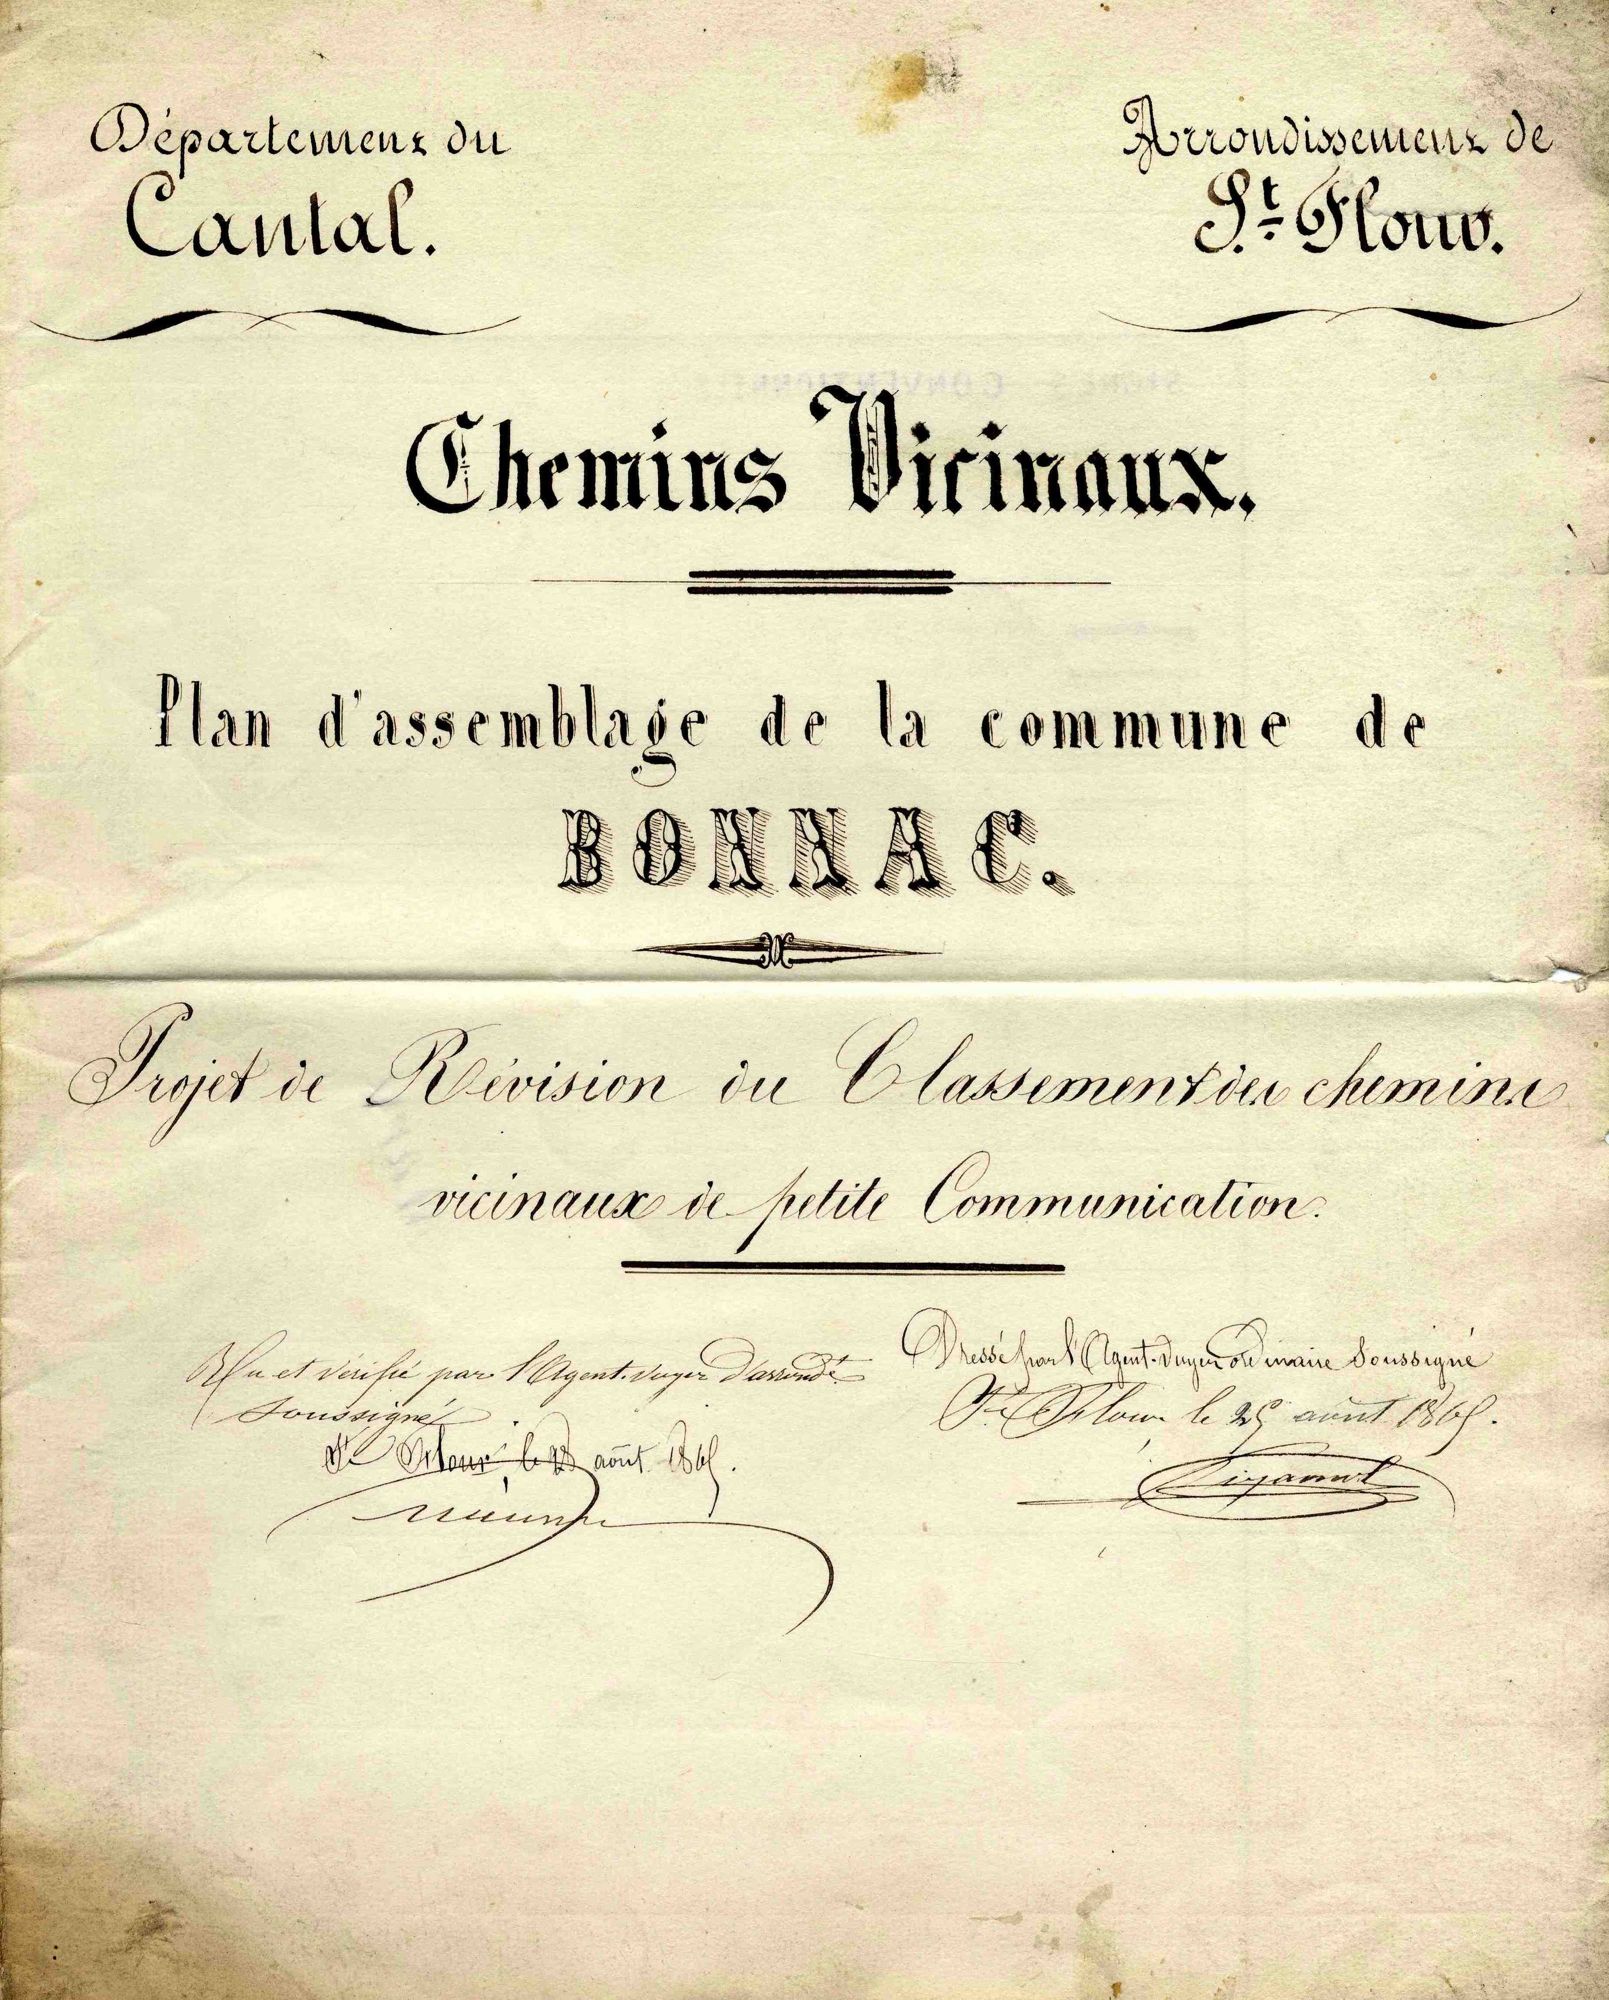 Département du
Cantal.
Arrondissement de
St. Flour.
Chemins Vicinaux.
Plan d'assemblage de la commune de
BONNAC.
Projet de Révision du Classement des chemins
vicinaux de petite Communication.
Vu et vérifié par l'Agent-Voyer d'arrondt
soussigné
St Flour, le août 1865.
Dressé par l'Agent-Voyer ordinaire soussigné
St Flour le 25 août 1865.